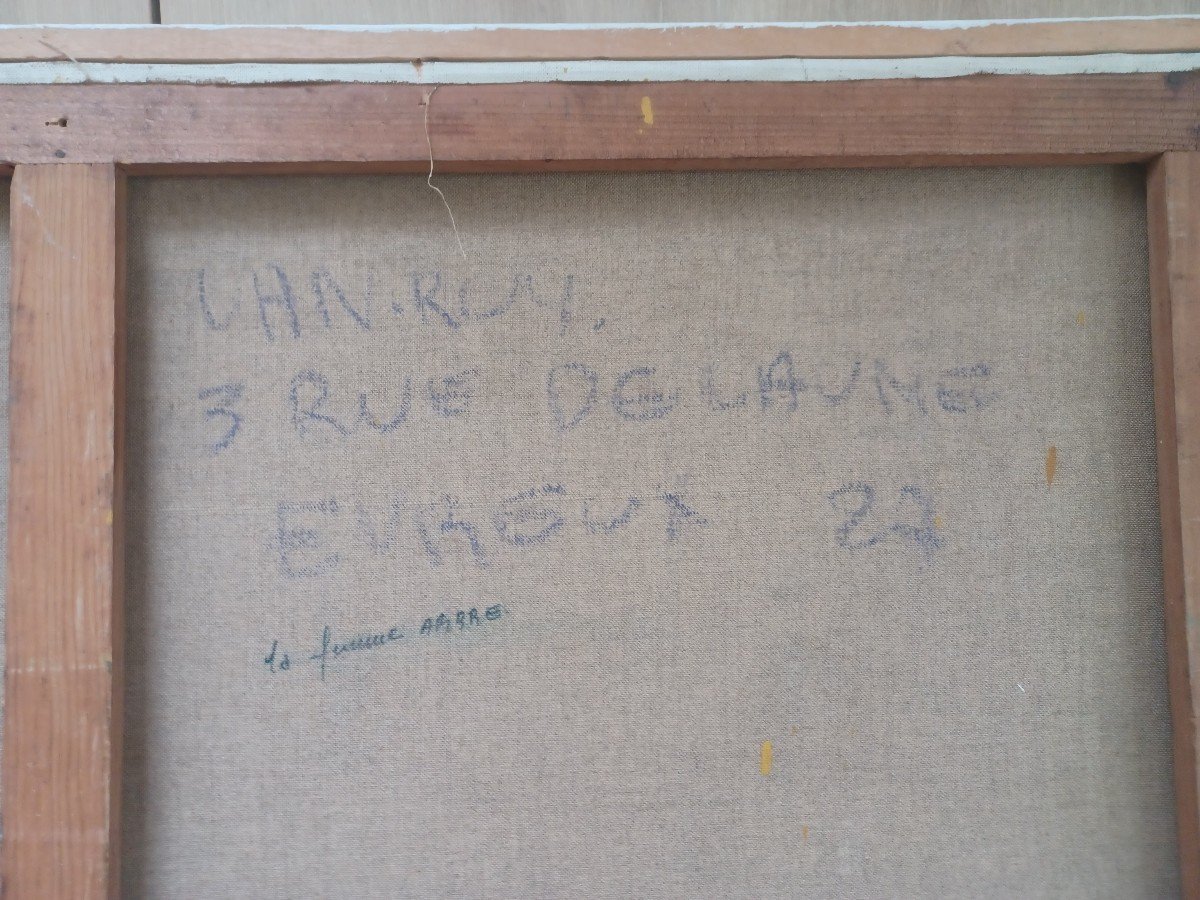 VAN.RUY.
3 RUE DELAUNE
EVREUX 27
la femme ARBRE